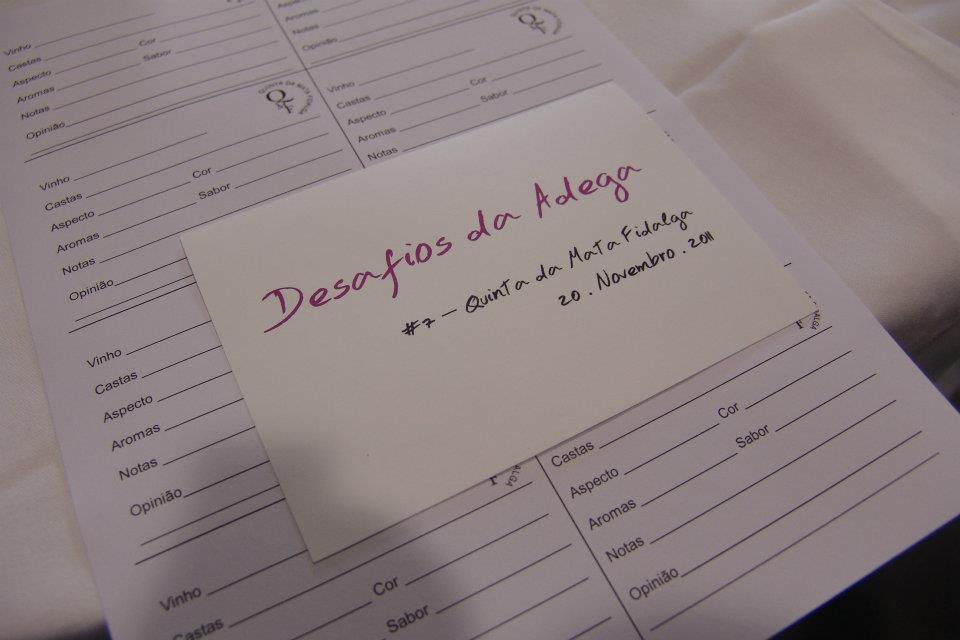 Vinho
Castas Cor
Aspecto
Aromas Sabor
Notas
Opinião
QUINTA DA MATA FIDALGA
Aspecto
Aromas
Notas
Opinião
Vinho
Castas Cor
Aspecto
Aromas Sabor
Notas
Vinho
Castas Cor
Aspecto
Aromas Sabor
Notas
Opinião
Desafios da Adega
#7 - Quinta da Mata Fidalga
20. Novembro. 2011
Vinho
Castas
Aspecto
Aromas
Notas
Opinião
ALGA
Castas
Aspecto Cor
Aromas Sabor
Notas
Opinião
ALGA
Vinho
Castas Cor
Sabor